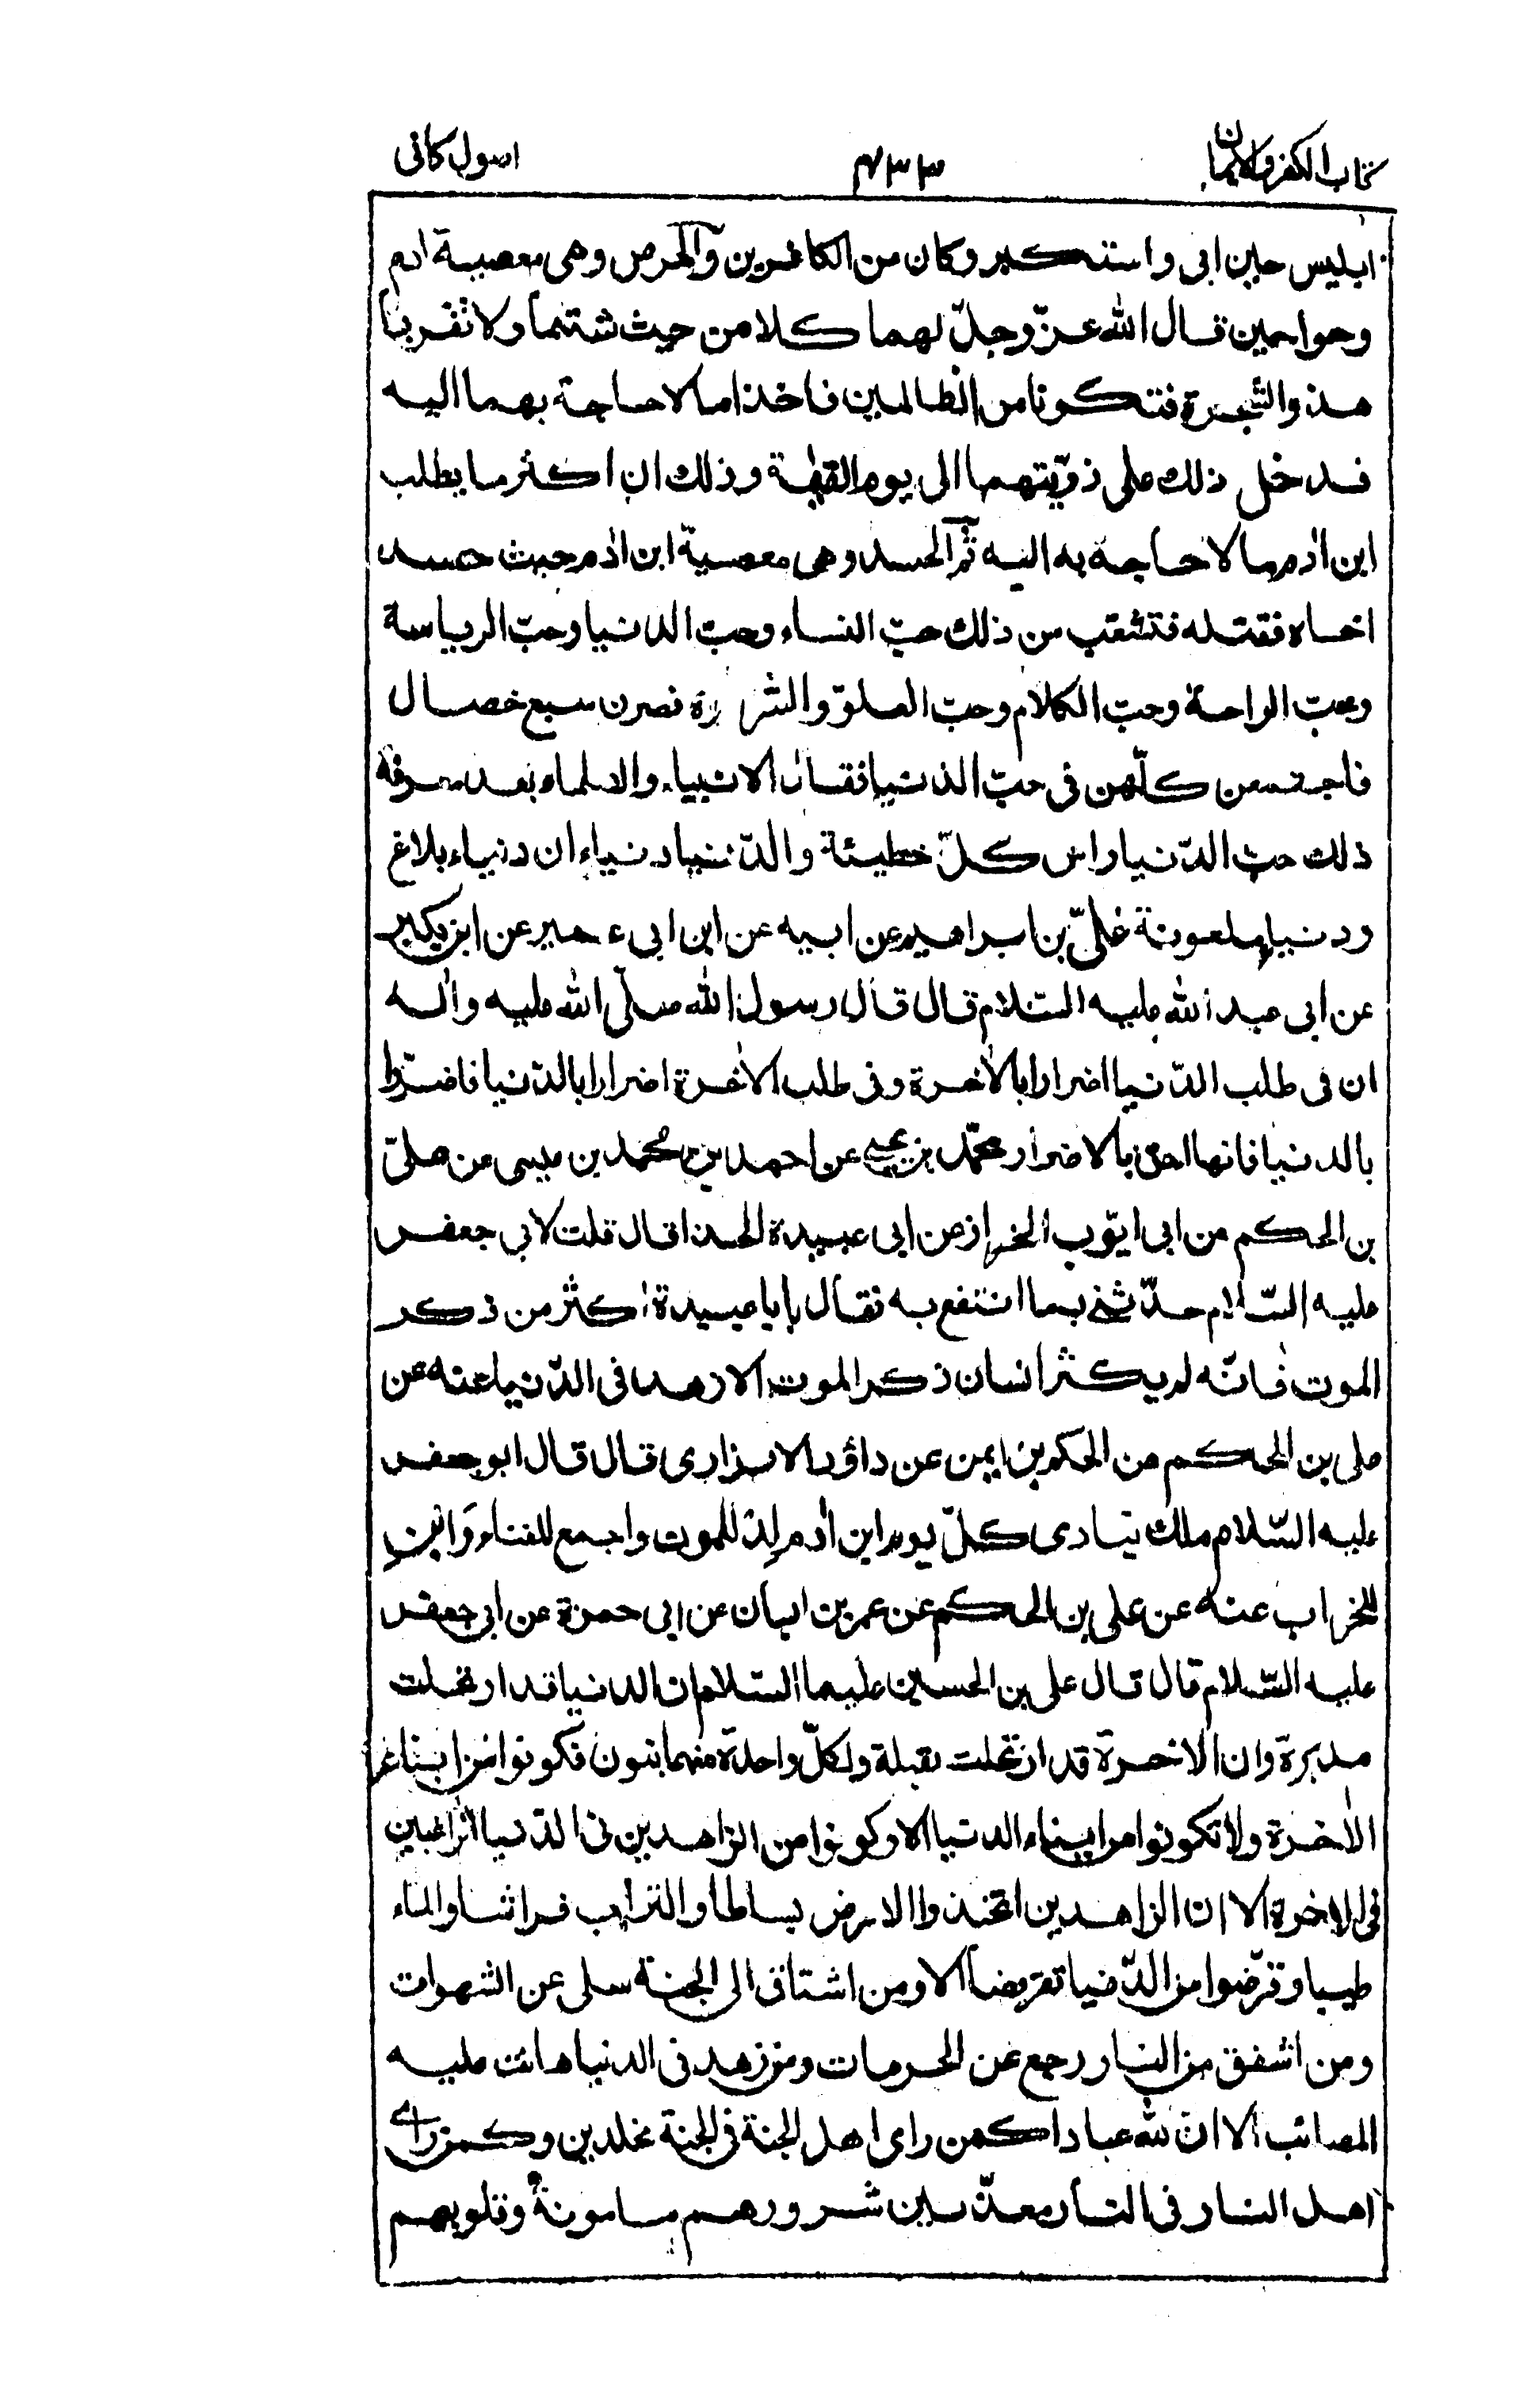 كتاب الكفر والايمان ٤٣٣ اصول كافى
ابليس حين ابى واستكبر وكان من الكافرين والحرص وهى معصية ادم
وحوا حين قال الله عزّ وجلّ لهما كلا من حيث شئتما ولا تقربا
هذه الشجرة فتكونا من الظالمين فاخذا ما لا حاجة بهما اليه
فدخل ذلك على ذرّيتهما الى يوم القيٰمة وذلك ان اكثر ما يطلب
ابن اٰدم ما لا حاجة به اليه ثم الحسد وهى معصية ابن اٰدم حيث حسد
اخاه فقتله فتشعّب من ذلك حبّ النساء وحبّ الدنيا وحبّ الرياسة
وحبّ الراحة وحبّ الكلام وحبّ العلوّ والثروة فصرن سبع خصال
فاجتمعن كلّهن فى حبّ الدنيا فقال الانبياء والعلماء بعد معرفة
ذلك حبّ الدّنيا راس كلّ خطيئة والدّنيا دنياءان دنياء بلاغ
ودنيا ملعونة علىّ بن ابراهيم عن ابيه عن ابن ابى عمير عن ابن بكير
عن ابى عبد الله عليه السّلام قال قال رسول الله صلّى الله عليه واٰله
ان فى طلب الدّنيا اضرارا بالاٰخرة وفى طلب الاٰخرة اضرارا بالدّنيا فاضرّوا
بالدنيا فانها احق بالاضرار محمّد بن يحيى عن احمد بن محمد بن عيسى عن علىّ
بن الحكم عن ابى ايّوب الخراز عن ابى عبيدة الحذا قال قلت لابى جعفر
عليه السّلام حدّثنى بما انتفع به فقال يا با عبيدة اكثر من ذكر
الموت فانّه لم يكثر انسان ذكر الموت الا زهد فى الدّنيا عنه عن
على بن الحكم عن الحكم بن ايمن عن داؤد الابزارى قال قال ابو جعفر
عليه السّلام ملك ينادى كلّ يوم ابن اٰدم لد للموت واجمع للفناء وابن
للخراب عنه عن على بن الحكم عن عمر بن ابان عن ابى حمزة عن ابى جعفر
عليه السّلام قال قال على بن الحسين عليهما السّلام ان الدنيا قد ارتحلت
مدبرة وان الاخرة قد ارتحلت مقبلة ولكلّ واحدة منهما بنون فكونوا من ابناء
الاٰخرة ولا تكونوا من ابناء الدنيا الا وكونوا من الزاهدين فى الدّنيا الراغبين
فى الاخرة الا ان الزاهدين اتخذوا الارض بساطا والتراب فراشا والماء
طيبا وقرّضوا من الدّنيا تقريضا الا ومن اشتاق الى الجنة سلى عن الشهوات
ومن اشفق من النار رجع عن المحرمات ومن زهد فى الدنيا هانت عليه
المصائب الا ان لله عبادا كمن راى اهل الجنة فى الجنة مخلدين وكمن راى
اهل النار فى النار معذّبين شرورهم مامونة وقلوبهم